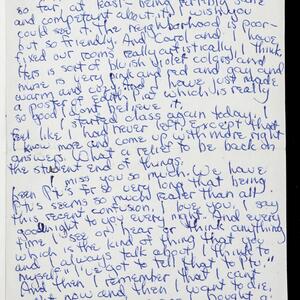 so far at least - being terribly sane
and competent about it. I wish you
could see it. The neighborhood is poor -
but so friendly. And Carol and I have
fixed our rooms really artistically, I think,
hers is sort of bluish violet colors and
mine is very pink and red and gay and
warm and exciting. I have just made
a poster of Ralph, 4' which is really
so good I don't believe it.
I started class again today &
feel like I had never left except that
I know more and come up with more right
answers. What a relief to be back on
the student end of things.
I miss you so much. We have
been "us" for so very long that being
"us" seems so much realer than all
this recent confusion. I love you. I say
goodnight to you every night. And every
time I see or hear or think anything
which is the kind of thing that you
and I always talk about, I think to
myself "I've got to tell that to Flu."
And then I remember that I can't
right now and then I want to die.